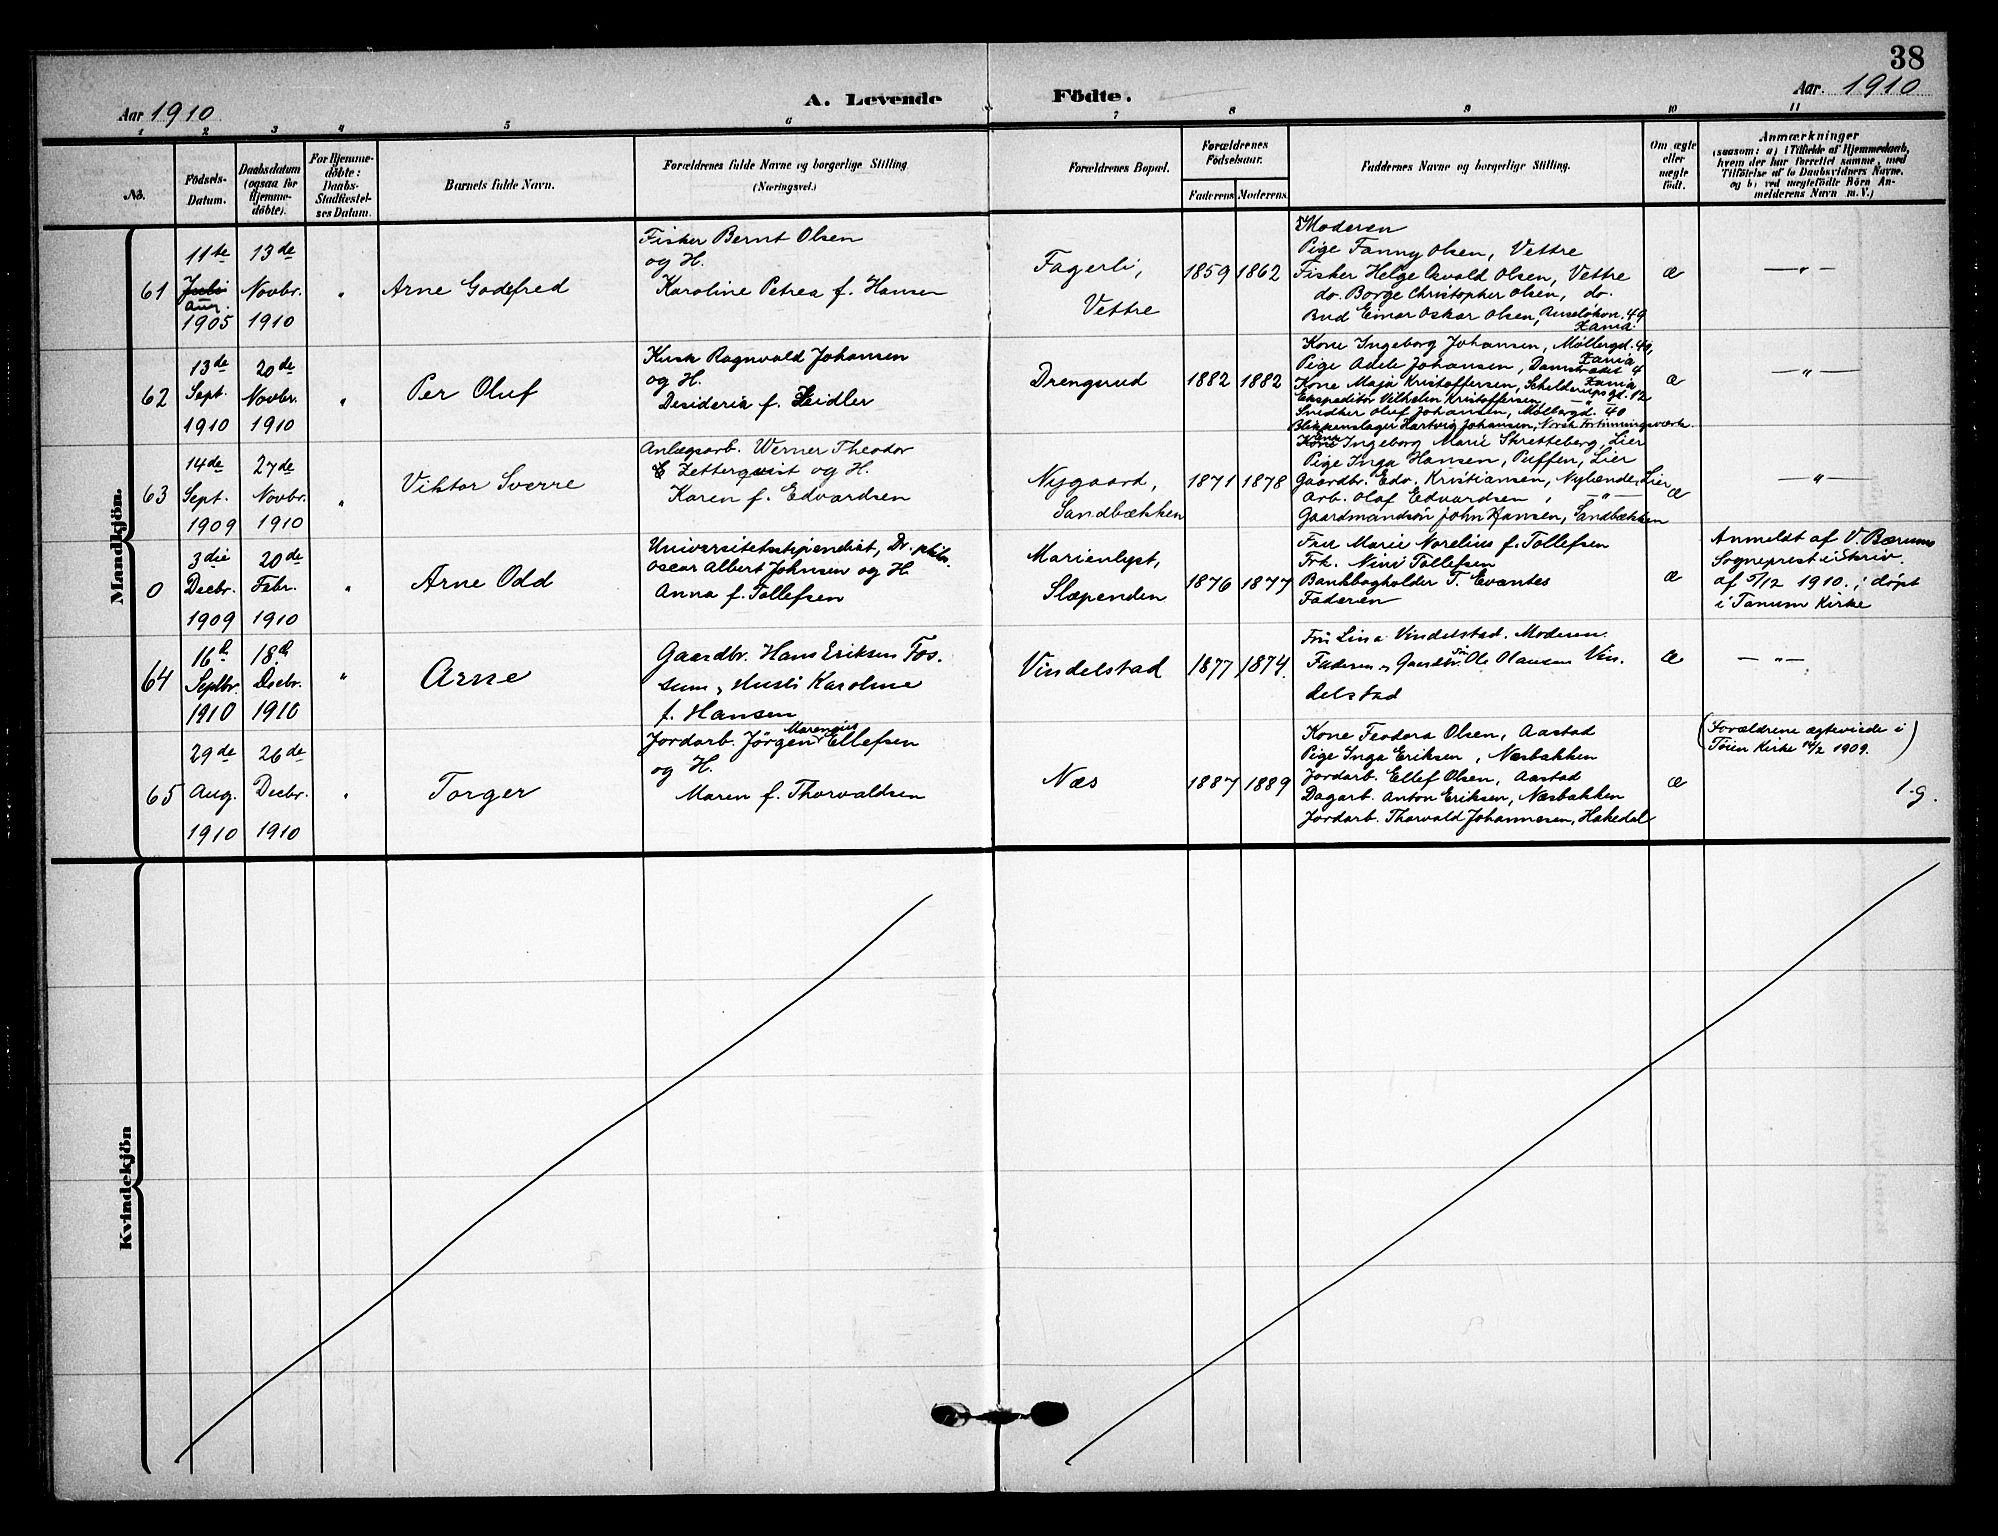 38
Aar 1910
A. Levende
Födte.
Aar. 1910
1 2 3 4 5 6 7 8 9 10 11
No.
Födsels-
Datum.
Daabsdatum
(ogsaa for
Hjemme-
döbte).
For Hjemme-
döbte:
Daabs-
Stadfæstel-
ses Datum.
Barnets fulde Navn.
Forældrenes fulde Navne og borgerlige Stilling
(Næringsvei.)
Forældrenes Bopæl.
Forældrenes
Födselsaar.
Faderens
Moderens.
Faddernes Navne og borgerlige Stilling.
Om ægte
eller
uægte
födt.
Anmærkninger
(saasom: a) i Tilfælde af Hjemmedaab,
hvem der har forrettet samme, med
Tilföielse af to Daabsvidners Navne.
og b) ved uægtefödte Börn An-
melderens Navn m. V.)
Mandkjön.
61
11te
Juli
Aug.
1905
13de
Novbr.
1910
"
Arne Godefred
Fisker Bernt Olsen
og H.
Karoline Petrea f. Hansen
Fagerli,
Vettre
1859
1862
Moderen
Pige Fanny Olsen, Vettre
Fisker Helge Osvald Olsen, Vettre
do. Borge Christopher Olsen, do.
Bud Einar Oskar Olsen, Ruseløkvn. 49
Xania.
æ
— " —
62
13de
Sept.
1910
20de
Novbr.
1910
"
Per Oluf
Kusk Ragnvald Johansen
og H.
Desideria f. Zeidler
Drengsrud
1882
1882
Kone Ingeborg Johansen, Møllergd. 40,
Xania
Pige Adele Johansen, Damstrædet 4
Xania
Kone Maja Kristoffersen, Schelderupsgd. 12
Ekspeditör Vilhelm Kristoffersen, — " —
Snedker Oluf Johansen, Møllergd. 40
Blikkenslager Hartvig Johansen, Norsk Fortinningsværk.
æ
— " —
63
14de
Sept.
1909
27de
Novbr.
1910
"
Viktor Sverre
Anlægsarb. Werner Theodor
Zetterqvist og H.
Karen f. Edvardsen
Nygaard,
Sandbækken
1871
1878
Ingeborg Marie Stretteberg, Lier
Pige Inga Hansen, Puffen, Lier
Gaardbr. Edv. Kristiansen, Nylænde, Lier
Arb. Olaf Edvardsen, — " —
Gaardmandsön John Hansen, Sandbækken
æ
— " —
0
3die
Decbr.
1909
20de
Febr.
1910
"
Arne Odd
Universitetsstipendiat, Dr. philos.
Oscar Albert Johnsen og H.
Anna f. Tollefsen
Marienlyst,
Slæpenden
1876
1877
Fru Marie Norelius f. Tollefsen
Frk. Nini Tollefsen
Bankbogholder T. Evantes
Faderen
æ
Anmeldt af V. Bærums
Sogneprest i Skriv.
af 5/12 1910.; døpt
i Tanum Kirke
64
16d.
Septbr.
1910
18d.
Decbr.
1910
"
Arne
Gaardbr. Hans Eriksen Fos-
sum, Husti Karoline
f. Hansen
Vindelstad
1877
1874.
Fru Lina Vindelstad. Moderen.
Faderen, Gaardbr.sön Ole Olausen Vin-
delstad
æ
— " —
65
29de
Aug.
1910
26de
Decbr.
1910
"
Torger
Marenius
Jordarb. Jörgen Ellefsen
og H.
Maren f. Thorvaldsen
Næs
1887
1889
Kone Feodora Olsen, Aastad
Pige Inga Eriksen, Næsbakken
Jordarb. Ellef Olsen, Aastad
Dagarb. Anton Eriksen, Næsbakken
Jordarb. Thorvald Johannesen, Hakedal
æ
(Forældrene ægteviede i
Töien Kirke 14/2 1909.)
1. g.
Kvindekjön